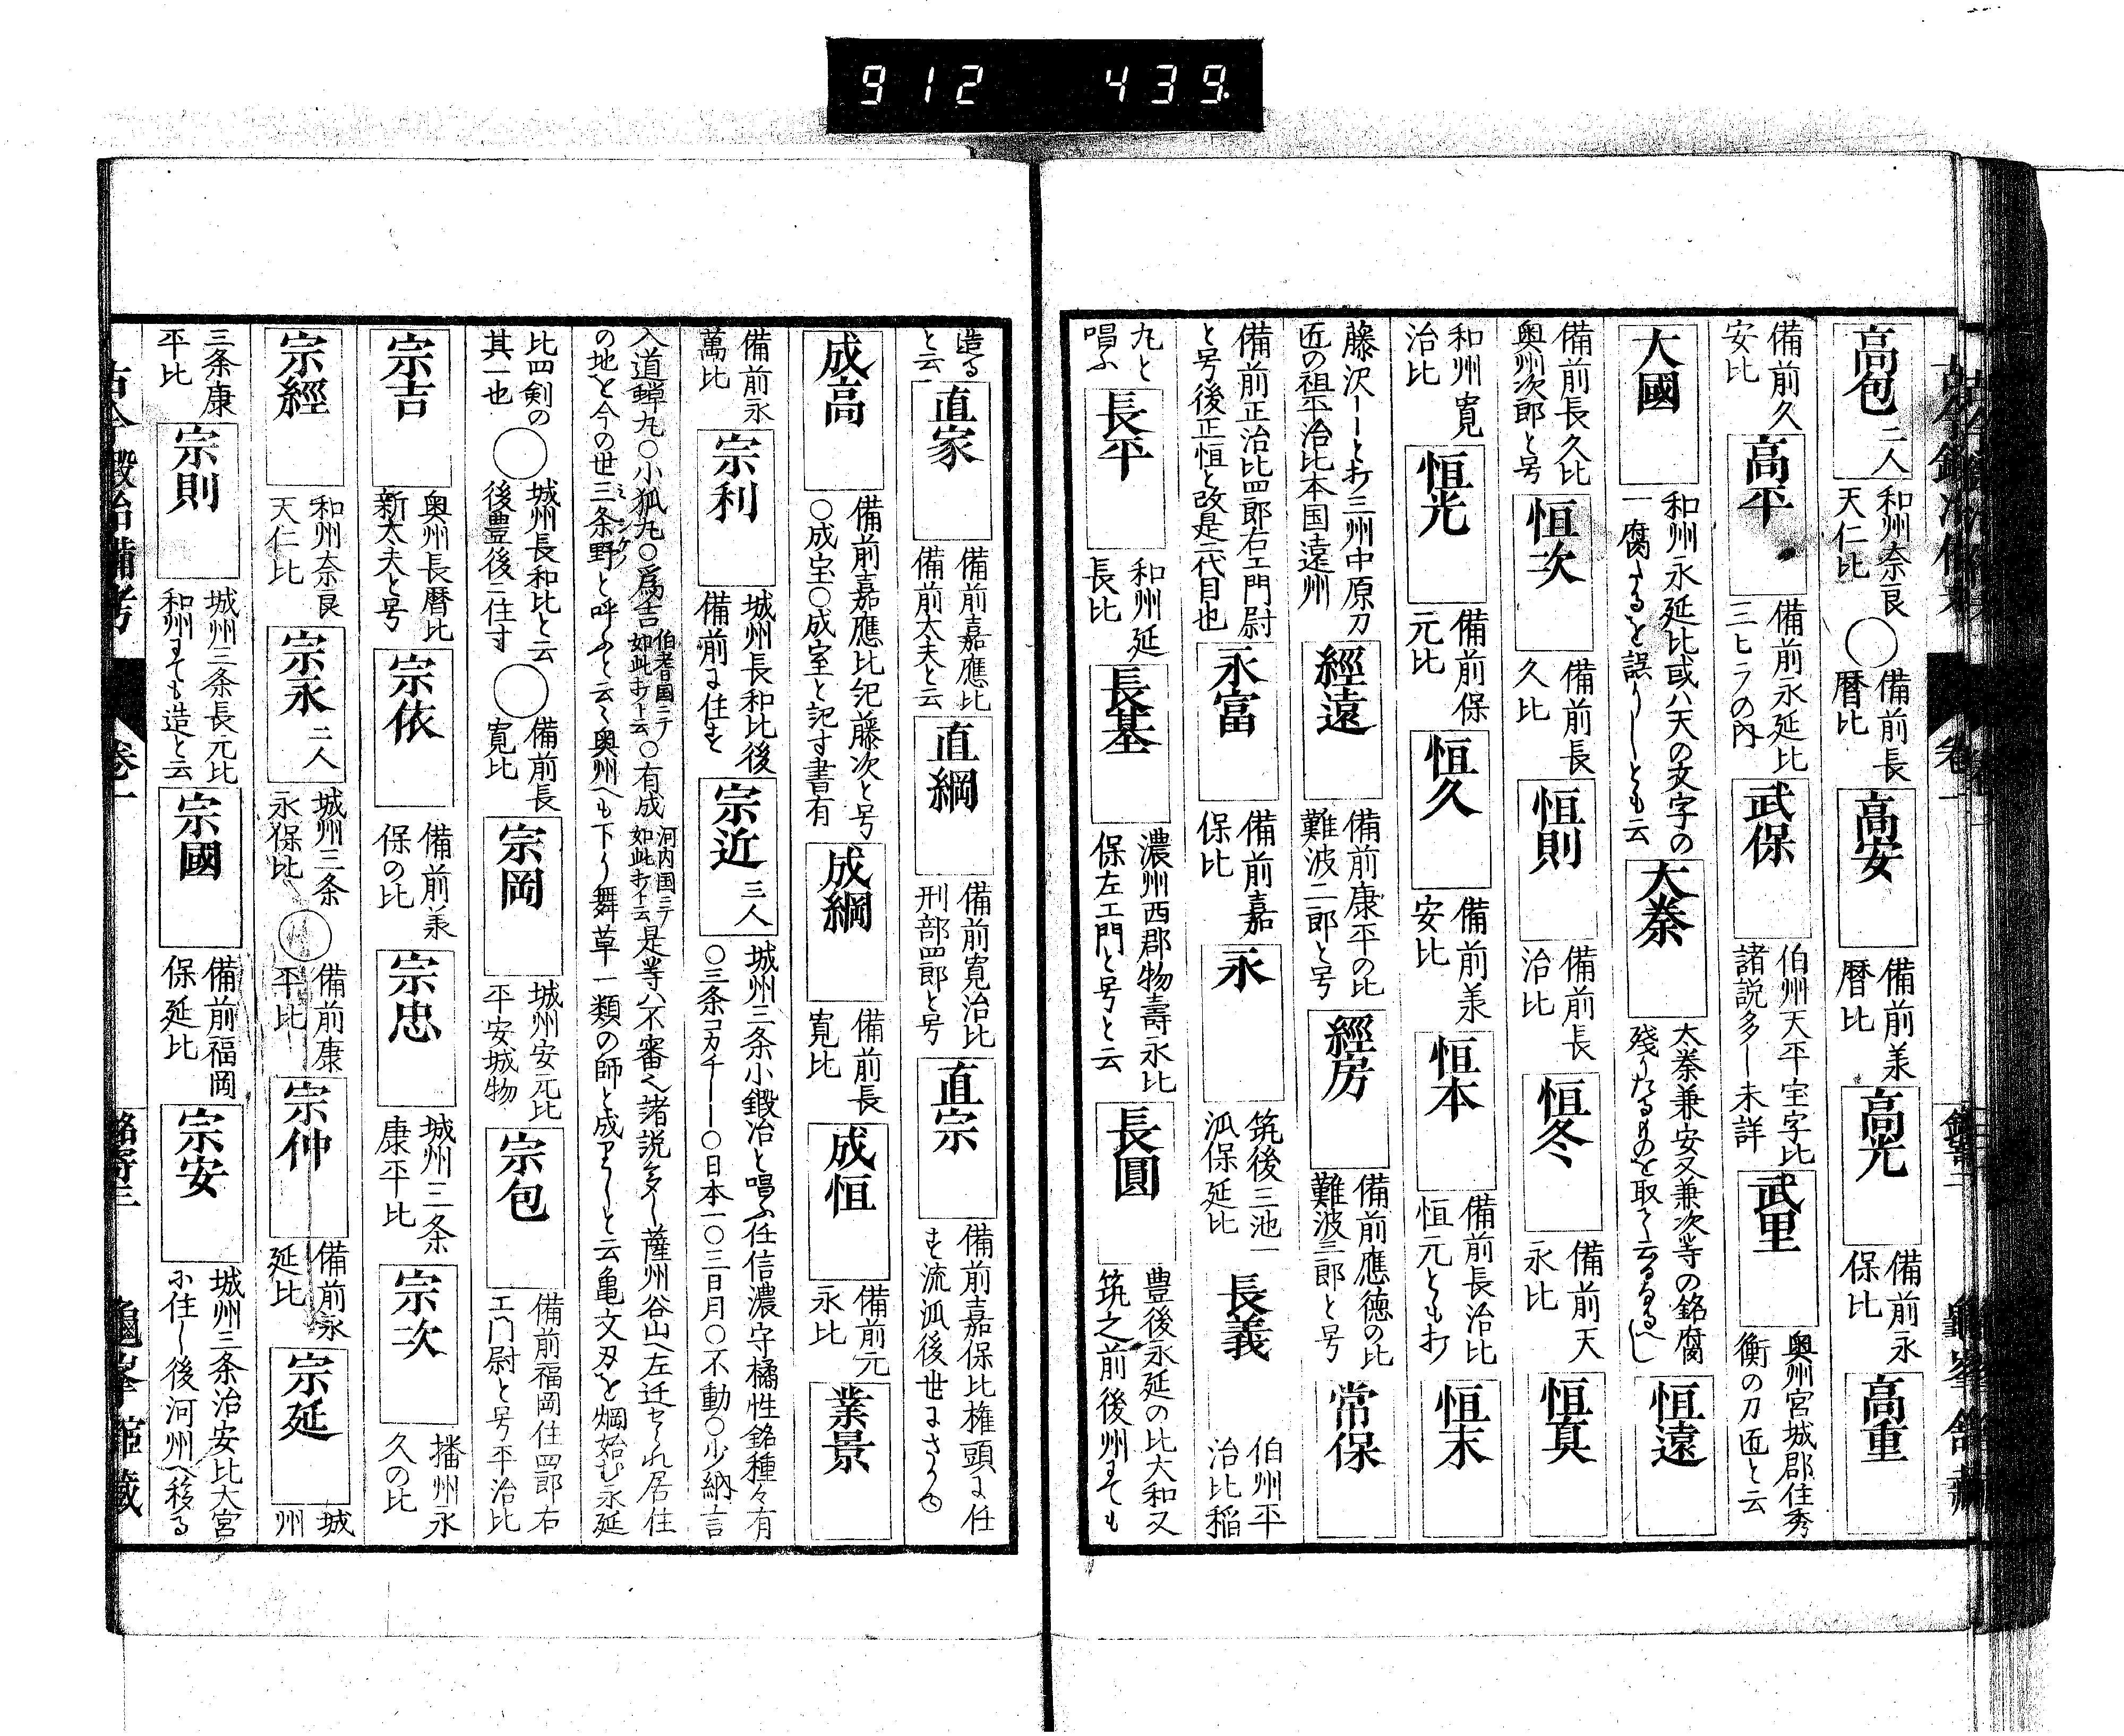 912 439
高包 二人 和州奈良天仁比 ◯ 備前長暦比 高安 備前美暦比 高光 備前永保比 高重
備前久安比 高平 備前永延比三ヒラの内 武保 伯州天平宝字比諸説多し未詳 武里 奥州宮城郡住秀衡の刀匠と云
大國 和州永延比或ハ天の文字の一腐たるを誤りしとも云 大秦 太秦兼安又兼次等の銘腐残りたるものを取て云なるべし 恒遠
備前長久比奥州次郎と号 恒次 備前長久比 恒則 備前長治比 恒冬 備前天永比 恒真
和州寛治比 恒光 備前保元比 恒久 備前美安比 恒本 備前長治比恒元とも打 恒末
藤沢ーーと打三州中原刀匠の祖平治比本国遠州 經遠 備前康平の比難波二郎と号 經房 備前應徳の比難波三郎と号 常保
備前正治比四郎右エ門尉と号後正恒と改是二代目也 永富 備前嘉保比 永 筑後三池一派保延比 長義 伯州平治比稲
九と唱ふ 長平 和州延長比 長基 濃州西郡物壽永比保左エ門と号と云 長圓 豊後永延の比大和又筑之前後州ニても
造ると云 直家 備前嘉應比備前大夫と云 直綱 備前寛治比刑部四郎と号 直宗 備前嘉保比権頭に任ず流派後世にさかゆ
成高 備前嘉應比紀藤次と号〇成宝〇成室と記す書有 成綱 備前長寛比 成恒 備前元永比 業景
備前永萬比 宗利 城州長和比後備前に住す 宗近 三人 城州三条小鍛冶と唱ふ任信濃守橘性銘種々有〇三条コカチーー〇日本一〇三日月〇不動〇少納言
入道蝉丸〇小狐丸〇爲吉 伯耆国ニテ如此打ト云 〇有成 河内国ニテ如此打ト云 是等ハ不審也諸説多し薩州谷山へ左迁せられ居住
の地を今の世三条野と呼ふと云又奥州へも下り舞草一類の師と成アりしと云亀文刄を焼始む永延
比四剣の其一也 ◯ 城州長和比と云後豊後ニ住す ◯ 備前長寛比 宗岡 城州安元比平安城物 宗包 備前福岡住四郎右エ門尉と号平治比
宗吉 奥州長暦比新太夫と号 宗依 備前美保の比 宗忠 城州三条康平比 宗次 播州永久の比
宗經 和州奈良天仁比 宗永 二人 城州三条永保比 ◯ 備前康平比 宗仲 備前永延比 宗延 城州
三条康平比 宗則 城州三条長元比和州ニても造と云 宗國 備前福岡保延比 宗安 城州三条治安比大宮に住し後河州へ移る
古今鍛冶備考 巻一 銘寄三 龜峯館藏